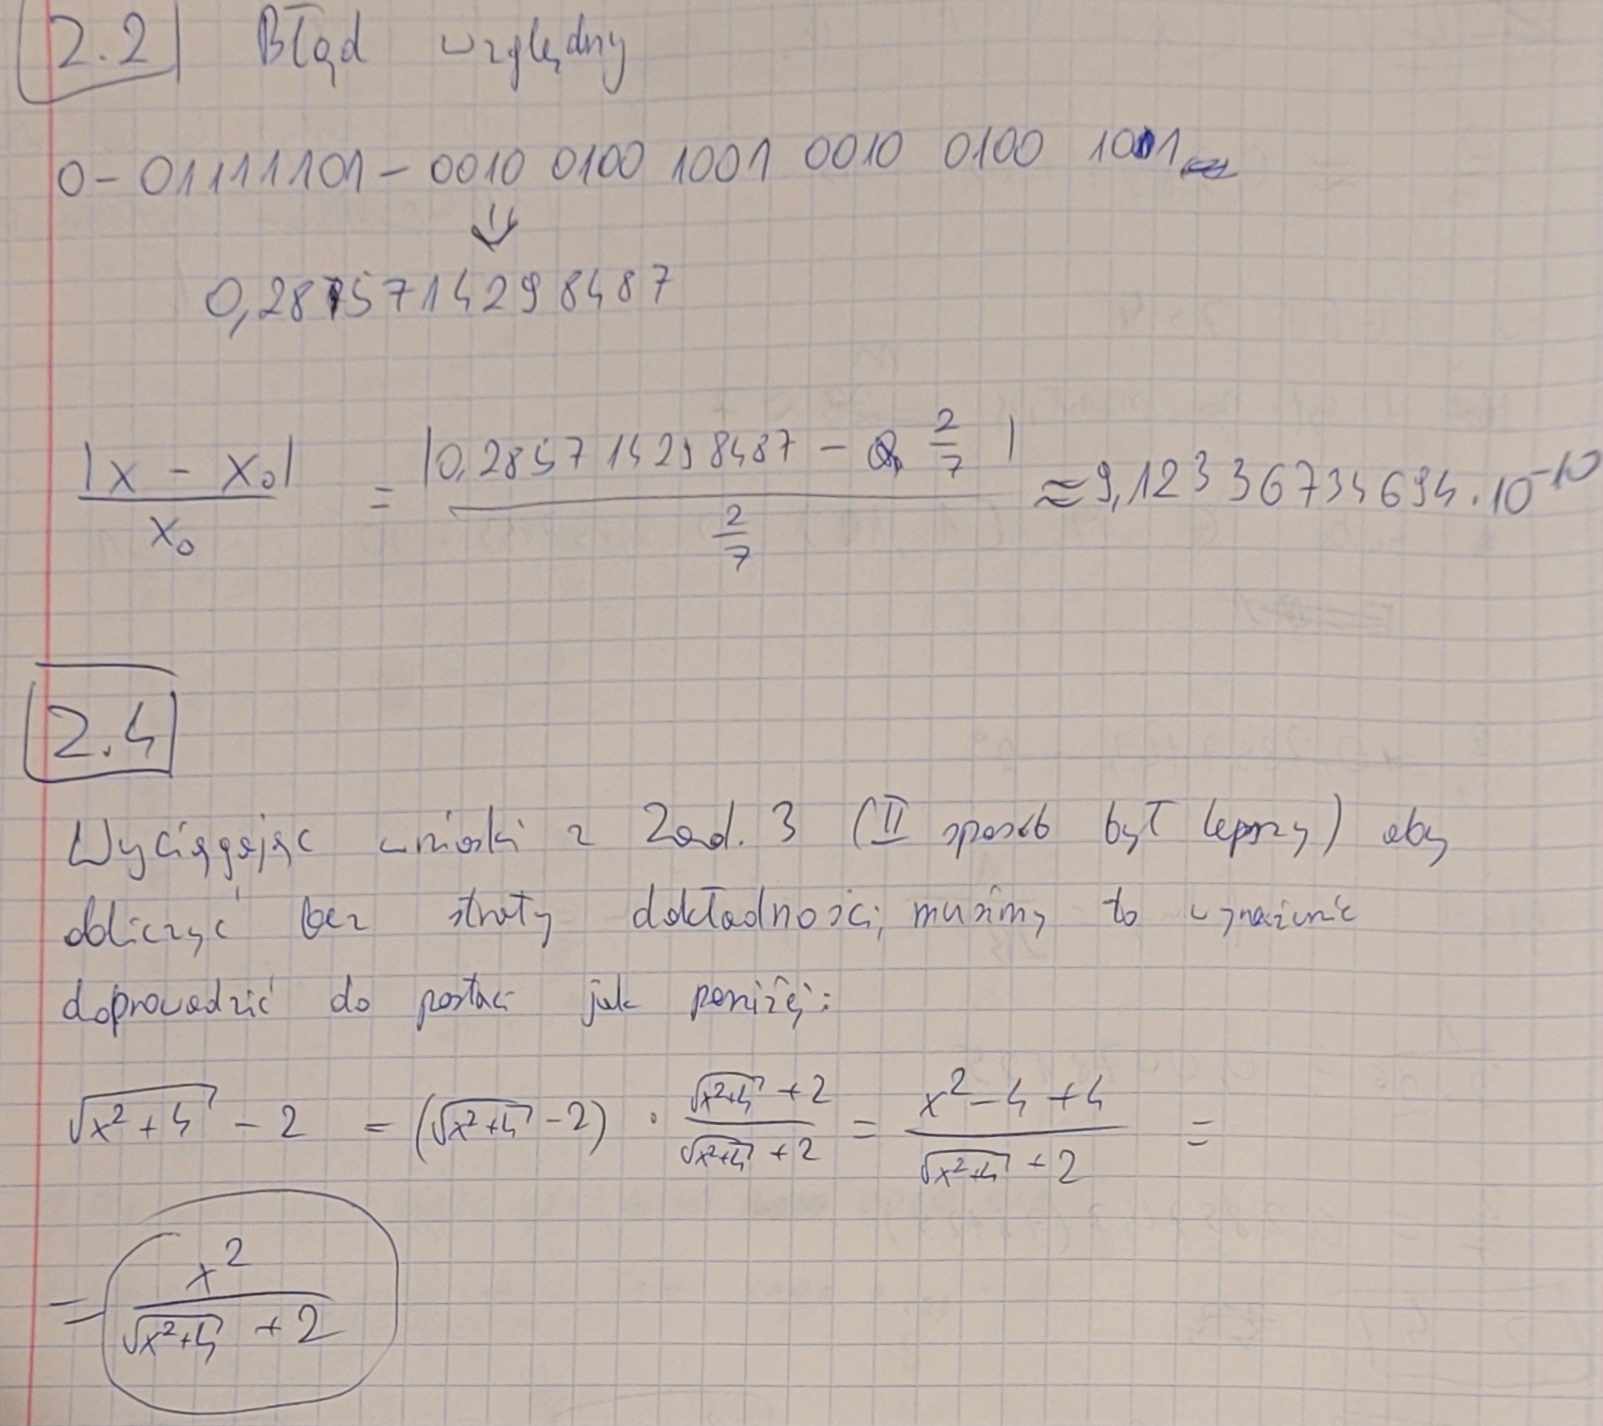 2.2 Błąd względny
0 - 01111101 - 0010 0100 1001 0010 0100 1001
⇓
0,285714298487
|x - x₀| / x₀ = |0,285714298487 - 2/7| / (2/7) ≈ 9,12336734694 · 10⁻¹⁰
2.4
Wyciągając wnioski z Zad. 3 (II sposób był lepszy) aby
obliczyć bez straty dokładności, musimy to wyrażenie
doprowadzić do postaci jak poniżej:
√(x²+4) - 2 = (√(x²+4) - 2) · (√(x²+4) + 2) / (√(x²+4) + 2) = (x² - 4 + 4) / (√(x²+4) + 2) =
= x² / (√(x²+4) + 2)